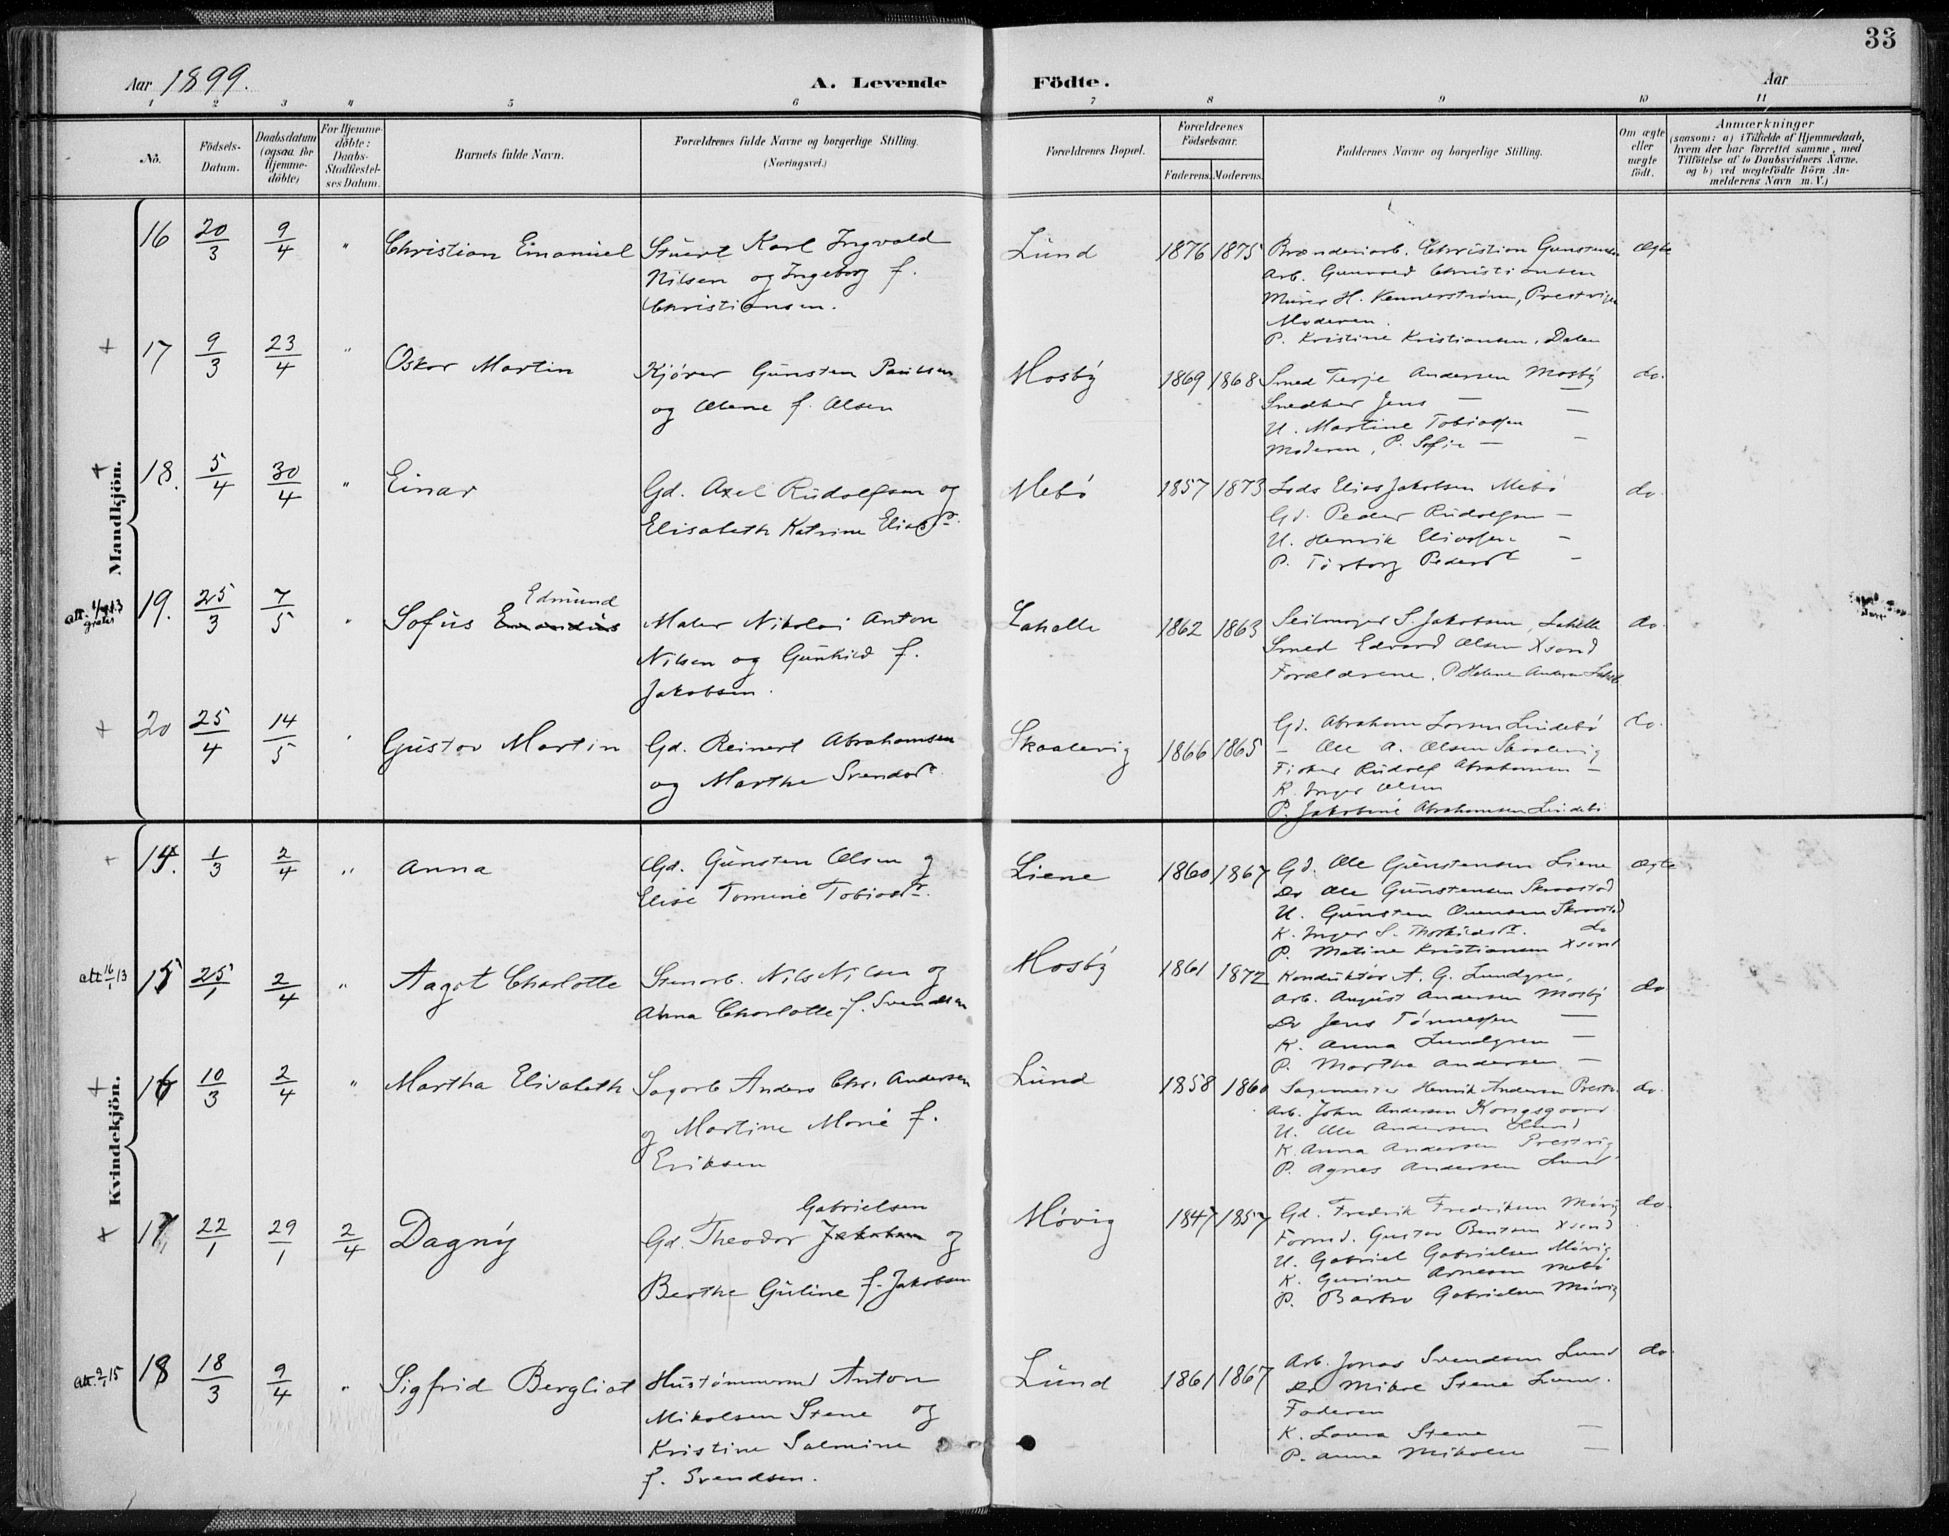 33
Aar 1899. A. Levende Födte. Aar
1 2 3 4 5 6 7 8 9 10 11
No.
Födsels-Datum.
Daabsdatum (ogsaa for Hjemme-döbte)
For Hjemme-döbte: Daabs-Stadfestel-ses Datum.
Barnets fulde Navn.
Forældrenes fulde Navne og borgerlige Stilling.
(Næringsvei.)
Forældrenes Bopæl.
Forældrenes Födselsaar.
Faderens. Moderens.
Faddernes Navne og borgerlige Stilling.
Om ægte eller uægte födt.
Anmærkninger
(saasom: a) i Tilfælde af Hjemmedaab,
hvem der har forrettet samme, med
Tilföielse af to Daabsvidners Navne.
og b) ved uægtefödte Börn An-
melderens Navn m. V.)
Mandkjön.
16 20/3 9/4 " Christian Emanuel
Stuert Karl Ingvald
Nilsen og Ingeborg f.
Christiansen.
Lund 1876 1875
Brænderiarb. Christian Gunstensen
Arb. Gunvald Christiansen
Murer H. Kennerstrøm, Prestvigen
Moderen.
P. Kristine Kristiansen, Dalen
ægte
+ 17 9/3 23/4 " Oskar Martin
Kjører Gunsten Paulsen
og Olene f. Olsen
Mosby 1869 1868
Smed Terje Andersen Mosby
Snedker Jens —
U. Martine Tobiassen —
Moderen, P. Sofie — —
do.
+ 18. 5/4 30/4 " Einar
Gd. Axel Rudolfsen og
Elisabeth Katrine Eliasdr.
Mebø 1857 1873
Lods Elias Jakobsen Mebø
Gd. Peder Rudolfsen —
U. Henrik Eliassen —
P. Torborg Pedersdt —
do.
19. 25/3 7/5 " Sofus Edmund
Maler Nikolai Anton
Nilsen og Gunhild f.
Jakobsen.
Lahelle 1862 1863
Seilmager S. Jakobsen, Lahelle
Smed Edvard Olsen Xsand
Forældrene, P. Helene Andersen Lahelle
do.
+ 20 25/4 14/5 " Gustav Martin
Gd. Reinert Abrahamsen
og Marthe Svendsdr.
Skaalevig 1866 1865
Gd. Abraham Larsen Lindebø
— Ole A. Olsen Skaalevig
Fisker Rudolf Abrahamsen —
K. Inger Olsen
P. Jakobine Abrahamsen Lindebø
do.
Kvindekjön.
+ 14. 1/3 2/4 " Anna
Gd. Gunsten Olsen og
Elise Tomine Tobiasdr.
Liene 1860 1867
Gd. Ole Gunstensen Liene
Do Ole Gunstensen Skraastad
U. Gunsten Ouensen Skraastad
K. Inger S. Thorkildsdt. do
P. Matine Kristiansen Xsand
ægte
att 16/1 13 15 25/1 2/4 " Aagot Charlotte
Stenarb. Nils Nilsen og
Anna Charlotte f. Svendsen
Mosby 1861 1872
Konduktør A. G. Lundgren,
Arb. August Andersen Mosby
Do Jens Tønnessen —
K. Anna Lundgren —
P. Martha Andersen —
do
+ 16 10/3 2/4 " Martha Elisabeth
Sagarb. Anders Chr. Andersen
og Martine Marie f.
Eriksen
Lund 1858 1860
Sagmester Henrik Andersen Prestv.
Arb. John Andersen Kongsgaard
U. Ole Andersen Lund
K. Anna Andersen Prestvig
P. Agnes Andersen Lund
do.
+ 17 22/1 29/1 2/4 Dagny
Gabrielsen
Gd. Theodor Jakobsen og
Berthe Guline f. Jakobsen
Møvig 1847 1857
Gd. Fredrik Fredriksen Møvig
Formd. Gustav Bentsen Xsand
U. Gabriel Gabrielsen Møvig
K. Gurine Arnesen Mebø
P. Barbro Gabrielsen Møvig
do.
att. 9/1 15 18 18/3 9/4 " Sigfrid Bergliot
Hustømmermd Anton
Mikalsen Stene og
Kristine Salmine
f. Svendsen.
Lund 1861 1867
Arb. Jonas Svendsen Lund
Do Mikal Stene Lund.
Faderen
K. Laura Stene —
P. Anna Mikalsen —
do.